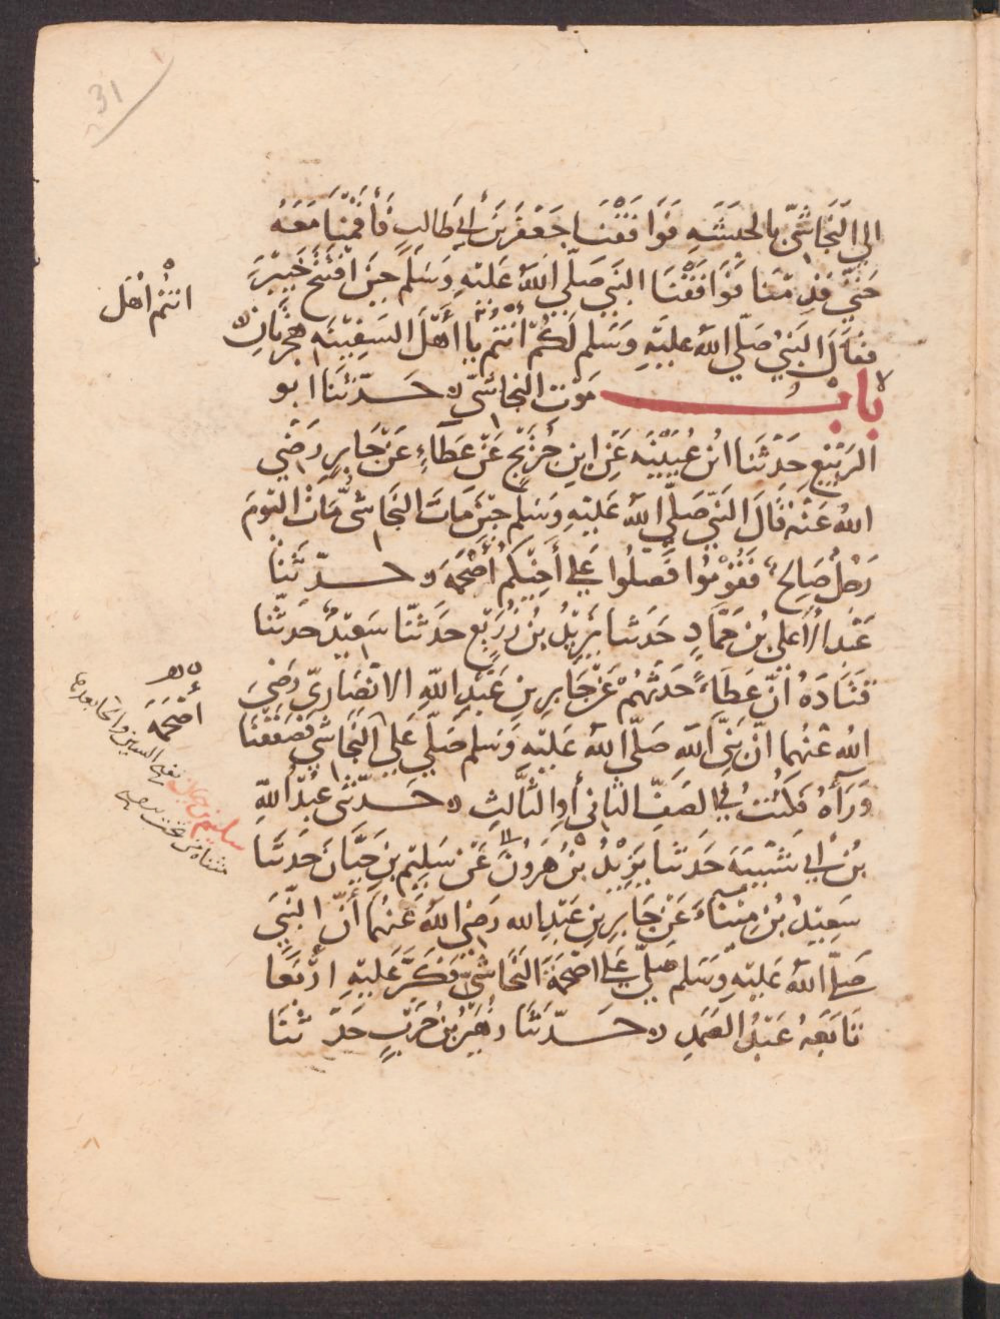 31
الي النَّجَاشيِّ بالحبَشَهِ فَوَافَقْنَا جَعْفَرَ بْنَ أَبي طَالبٍ فَأَقَمْنَا مَعَهُ
حَتّي قَدِمْنَا فَوَافَقْنَا النبَي صَلّي اللهُ عَليْهِ وَسَلَم حِيَن افتَتح خَيْبَرَ
فقَالَ النبَيُ صَلّي اللهُ عليْهِ وَسَلم لَكُمْ أَنْتُم يا أَهْلَ السَفِينَه هجْرَتَانِ
انتُم اهْل
بابُ مَوْتِ النجاشيّ حَدّثَنَا ابو
الرَبيْعِ حَدثَنا ابْن عُيَيْنَه عَنِ ابنِ جُرَيْجٍ عَنْ عَطَاءٍ عَنْ جَابرٍ رَضي
اللهُ عَنْهُ قَالَ النَبيّ صَلّي اللهُ عَليْهِ وَسَلم حِيْنَ مَاتَ النجَاشيُّ مَاتَ اليَومَ
رَجُلٌ صَالحٌ فَقُوْمُوا فَصَلوا عَلي أَخِيْكُم أَصْحَمَهَ حَدّثنَا
عَبْدُ الأعلي بْن حَمّادٍ حَدَثنا يَزيْدُ بْن زُرَيْع حَدَثنَا سَعِيْدٌ حَدثَنا
قتَادَهُ انَّ عَطَاءً حَدَثهُمْ عَنْ جَابرِ بنِ عَبْدِ اللهِ الانصَاريّ رَضيَ
اللهُ عَنهُما انّ نبَيَّ اللهِ صَلّي اللهُ عَليْهِ وَسَلم صَلّي عَلي النجَاشي فَصَفَفْنَا
أَصْحَمَةَ
وَرَآهُ فكُنْتُ في الصَفِّ الثاني أوِ الثالثِ حَدّثني عَبْدُ اللهِ
بْن أَبي شَيْبَهَ حَدثنا يَزِيْدُ بْنُ هَرُونَ عَنْ سَلِيْمِ بنِ حَيّان حَدثَنا
سَعِيْدُ بْن مِيْنَاءَ عَنْ جَابرِ بنِ عَبْدِ الله رَضيَ اللهُ عَنهُما أنّ النبَيَّ
صَليّ اللهُ عَليْهِ وَسَلم صَليّ عَلي اصْحَمَةَ النجَاشيّ فكَبَّرَ عَليْهِ ارْبَعًا
تَابَعَهُ عَبْدُ الصَمدِ حَدّثَنا زُهَيْرُ بْن حَرْبٍ حَدّثنَا